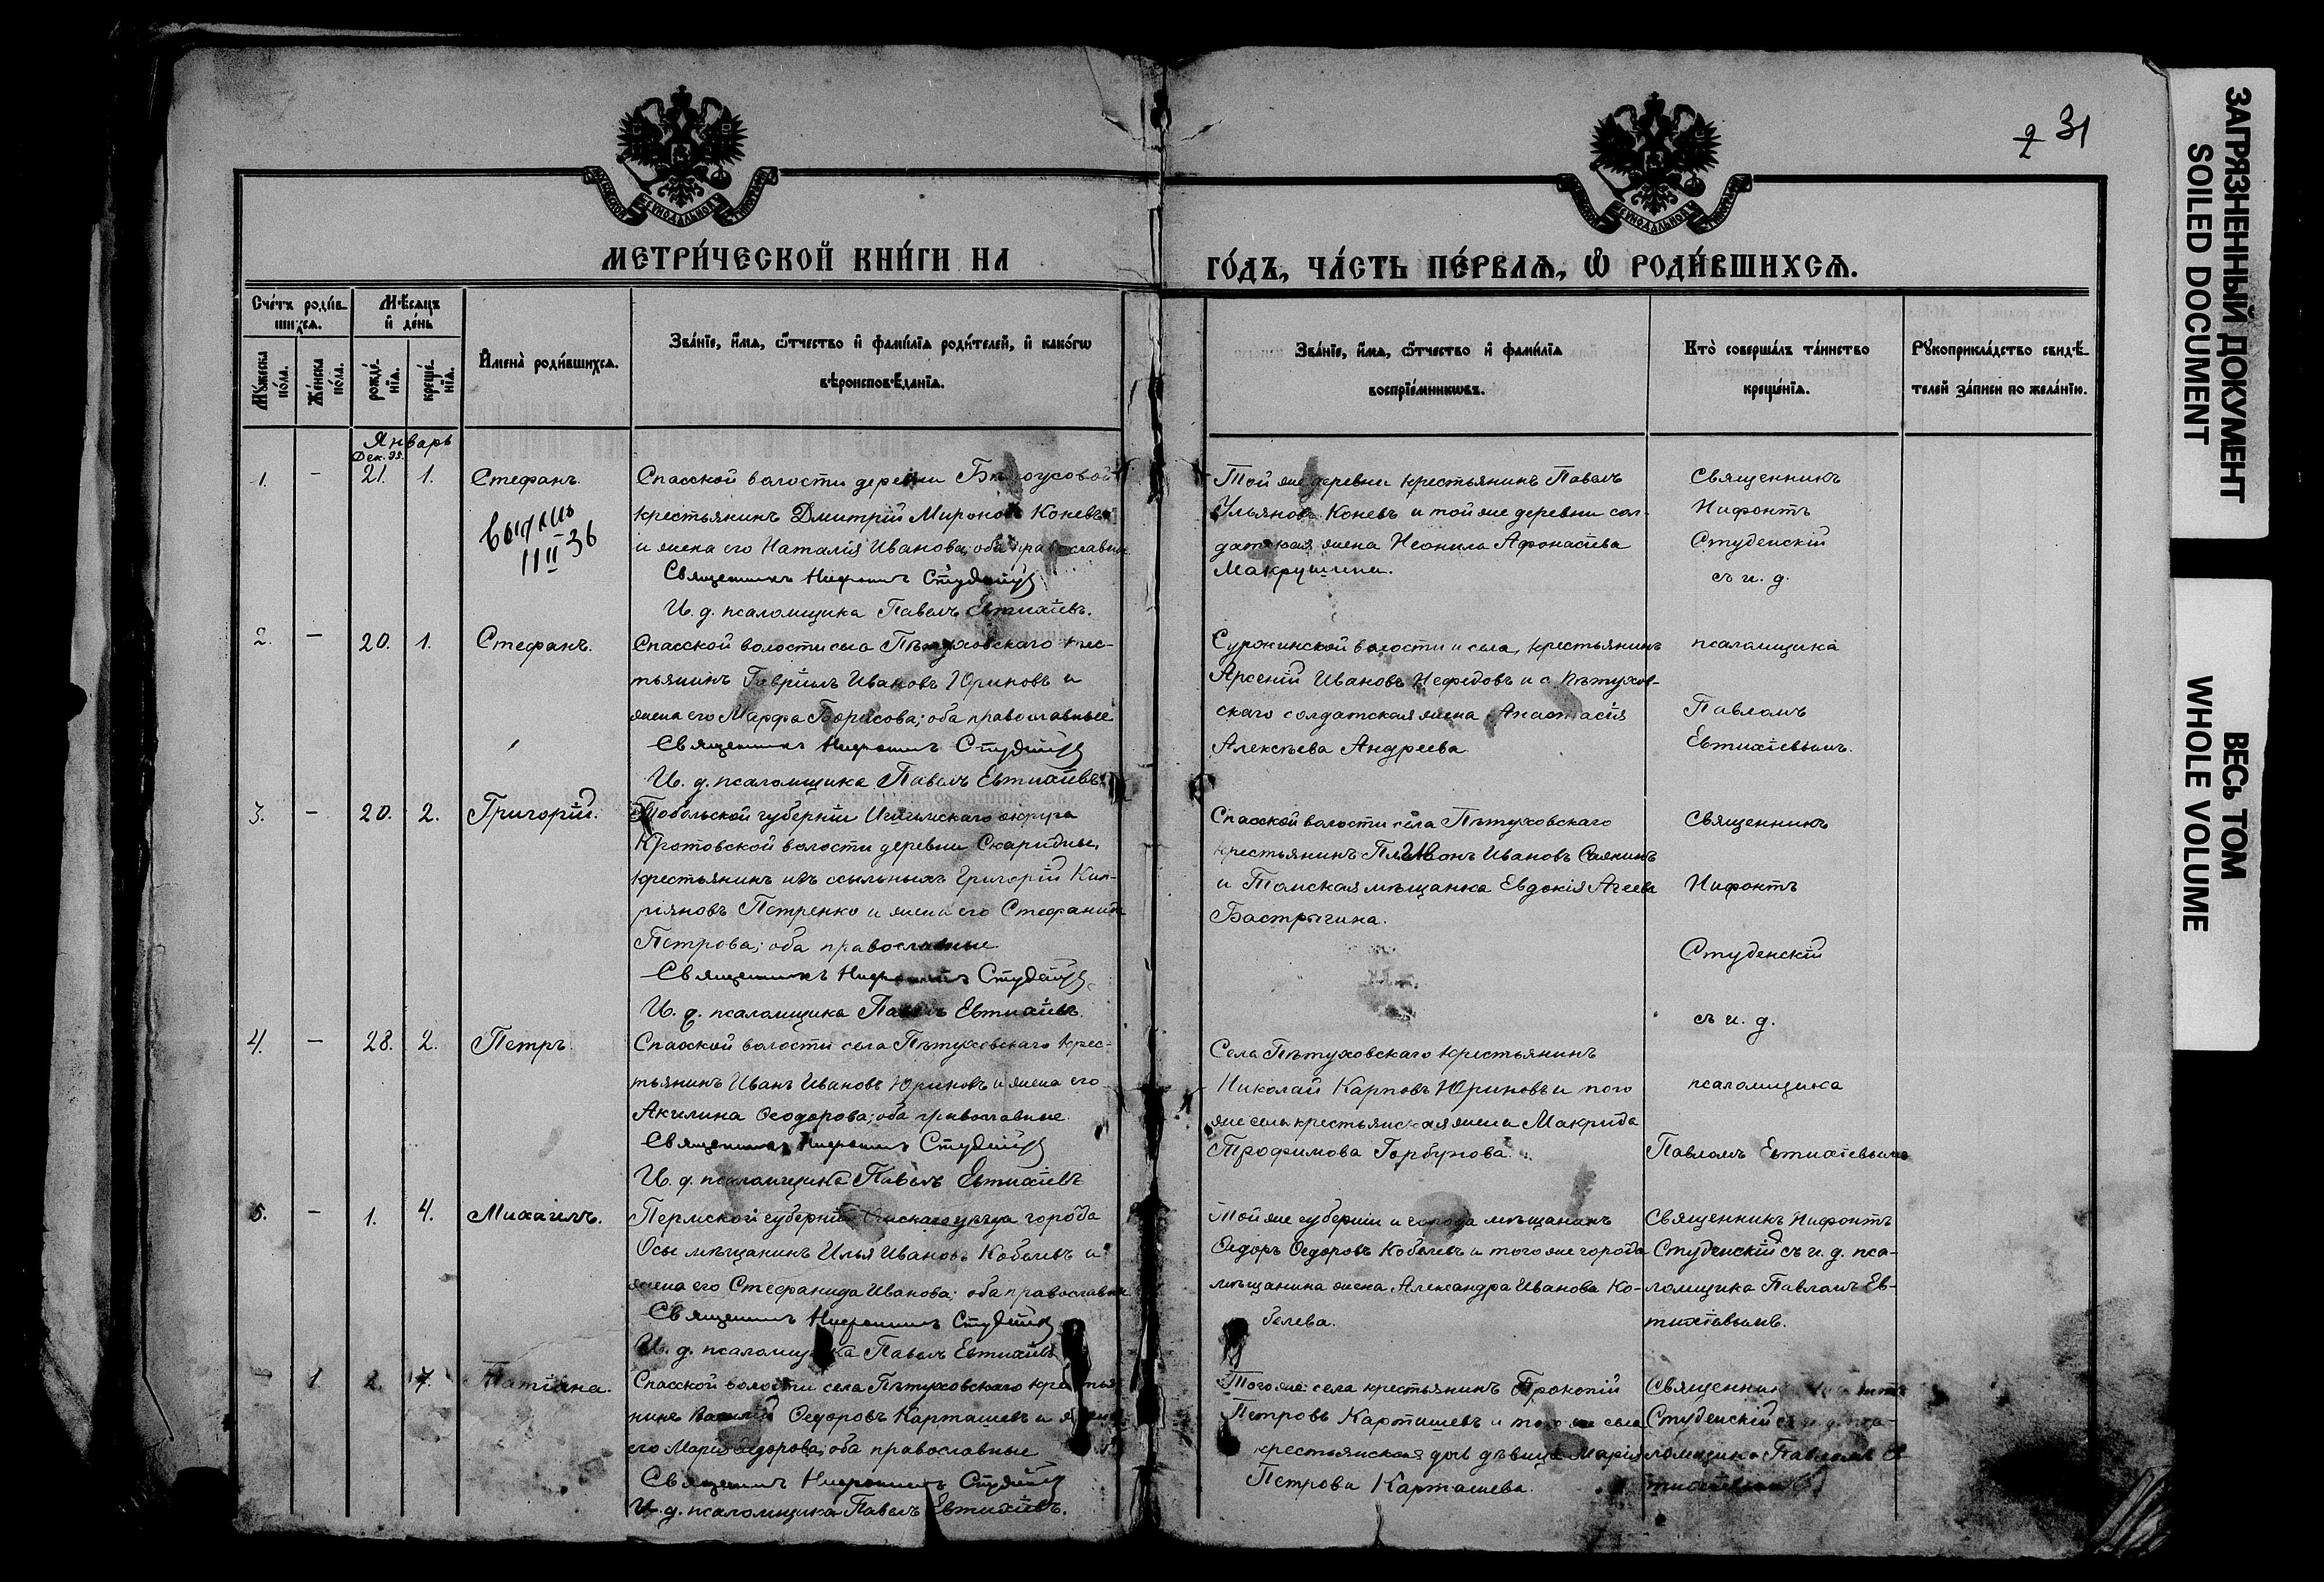 2 31
МЕТРИ́ЧЕСКОЙ КНИ́ГИ НА
ГО́ДЪ, ЧА́СТЬ ПЕ́РВАѦ, Ѡ҆ РОДИ́ВШИХСѦ.
Сче́тъ роди́в-
шихсѧ.
Мꙋ́жеска по́ла.
Же́нска по́ла.
Мѣ́сѧцъ
и҆ де́нь
рожде́-
нїѧ.
креще́-
нїѧ.
И҆мена̀ роди́вшихсѧ.
Зва́нїе, и҆́мѧ, ѻ҆́тчество и҆ фами́лїѧ роди́телей, и҆ како́гѡ
вѣроисповѣ́данїѧ.
Зва́нїе, и҆́мѧ, ѻ҆́тчество и҆ фами́лїѧ
воспрїе́мникѡвъ.
Кто̀ соверша́лъ та́инство
креще́нїѧ.
Рꙋкоприкла́дство свидѣ́-
телей за́писи по жела́нїю.
Январь
Дек. 95.
1. – 21. 1. Стефанъ.
II 36
Спасской волости деревни Бѣлоусовой
крестьянинъ Дмитрій Мироновъ Коневъ
и жена его Наталія Иванова; оба православн
Священникъ Нифонтъ Студенскій
И. д. псаломщика Павелъ Евтихіевъ.
Той же деревни крестьянинъ Павелъ
Ульяновъ Коневъ и той же деревни сол-
датская жена Неонила Афонасіева
Макрушина.
Священникъ
Нифонтъ
Студенскій
съ и. д.
2. – 20. 1. Стефанъ.
Спасской волости села Пѣтуховскаго крес-
тьянинъ Гавріилъ Ивановъ Юриновъ и
жена его Марфа Борисова; оба православные
Священникъ Нифонтъ Студенскій
И. д. псаломщика Павелъ Евтихіевъ.
Сурожинской волости и села, крестьянинъ
Арсеній Ивановъ Нефедовъ и с. Пѣтухов-
скаго солдатская жена Анастасія
Алексѣева Андреева
псаломщика
Павломъ
Евтихіевымъ.
3. – 20. 2. Григорій.
Тобольской губерніи Ишимскаго округа
Кротовской волости деревни Скаридны,
крестьянинъ изъ ссыльныхъ Григорій Кип-
ріяновъ Петренко и жена его Стефанида
Петрова; оба православные
Священникъ Нифонтъ Студенскій
И. д. псаломщика Павелъ Евтихіевъ.
Спасской волости села Пѣтуховскаго
крестьянинъ Ивановъ
и Томская мѣщанка Евдокія Агеева
Бастрыгина.
Священникъ
Нифонтъ
Студенскій
съ и. д.
4. – 28. 2. Петръ.
Спасской волости села Пѣтуховскаго крес-
тьянинъ Иванъ Ивановъ Юриновъ и жена его
Акилина Ѳеодорова; оба православные.
Священникъ Нифонтъ Студенскій
И. д. псаломщика Павелъ Евтихіевъ
Села Пѣтуховскаго крестьянинъ
Николай Карповъ Юриновъ и того
же села крестьянская жена Макрида
Трофимова Горбунова.
псаломщика
Павломъ Евтихіевымъ
5. – 1. 4. Михаилъ.
Пермской губерніи Осинскаго уѣзда города
Осы мѣщанинъ Илья Ивановъ Кобелевъ и
жена его Стефанида Иванова; оба православн
Священникъ Нифонтъ Студенскій
И. д. псаломщика Павелъ Евтихіевъ
Той же губерніи и города мѣщанинъ
Ѳедоръ Ѳедоровъ Кобелевъ и того же города
мѣщанина жена Александра Иванова Ко-
белева.
Священникъ Нифонтъ
Студенскій съ и. д. пса-
ломщика Павломъ Ев-
тихіевымъ.
– 1 2. 7. Татіана.
Спасской волости села Пѣтуховскаго крестья
нинъ Василій Ѳедоровъ Карташевъ и жена
его Марія Ѳедорова; оба православные
Священникъ Нифонтъ Студенскій
И. д. псаломщика Павелъ Евтихіевъ.
Того же села крестьянинъ Прокопій
Петровъ Карташевъ и того же села
крестьянская дѣвица Марія
Петрова Карташева.
Священник
Студенскій съ и. д. пса-
ломщика Павломъ Ев-
тихіевымъ
ЗАГРЯЗНЕННЫЙ ДОКУМЕНТ
SOILED DOCUMENT
ВЕСЬ ТОМ
WHOLE VOLUME